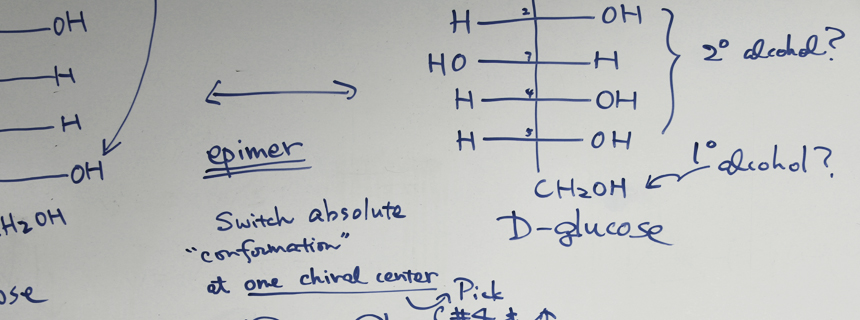 OH
H
H
OH
H2OH
ose
epimer
Switch absolute
"conformation"
at one chiral center
Pick
C#4
H 2 OH
HO H
H 4 OH
H 5 OH
CH2OH
D-glucose
2° alcohol?
1° alcohol?